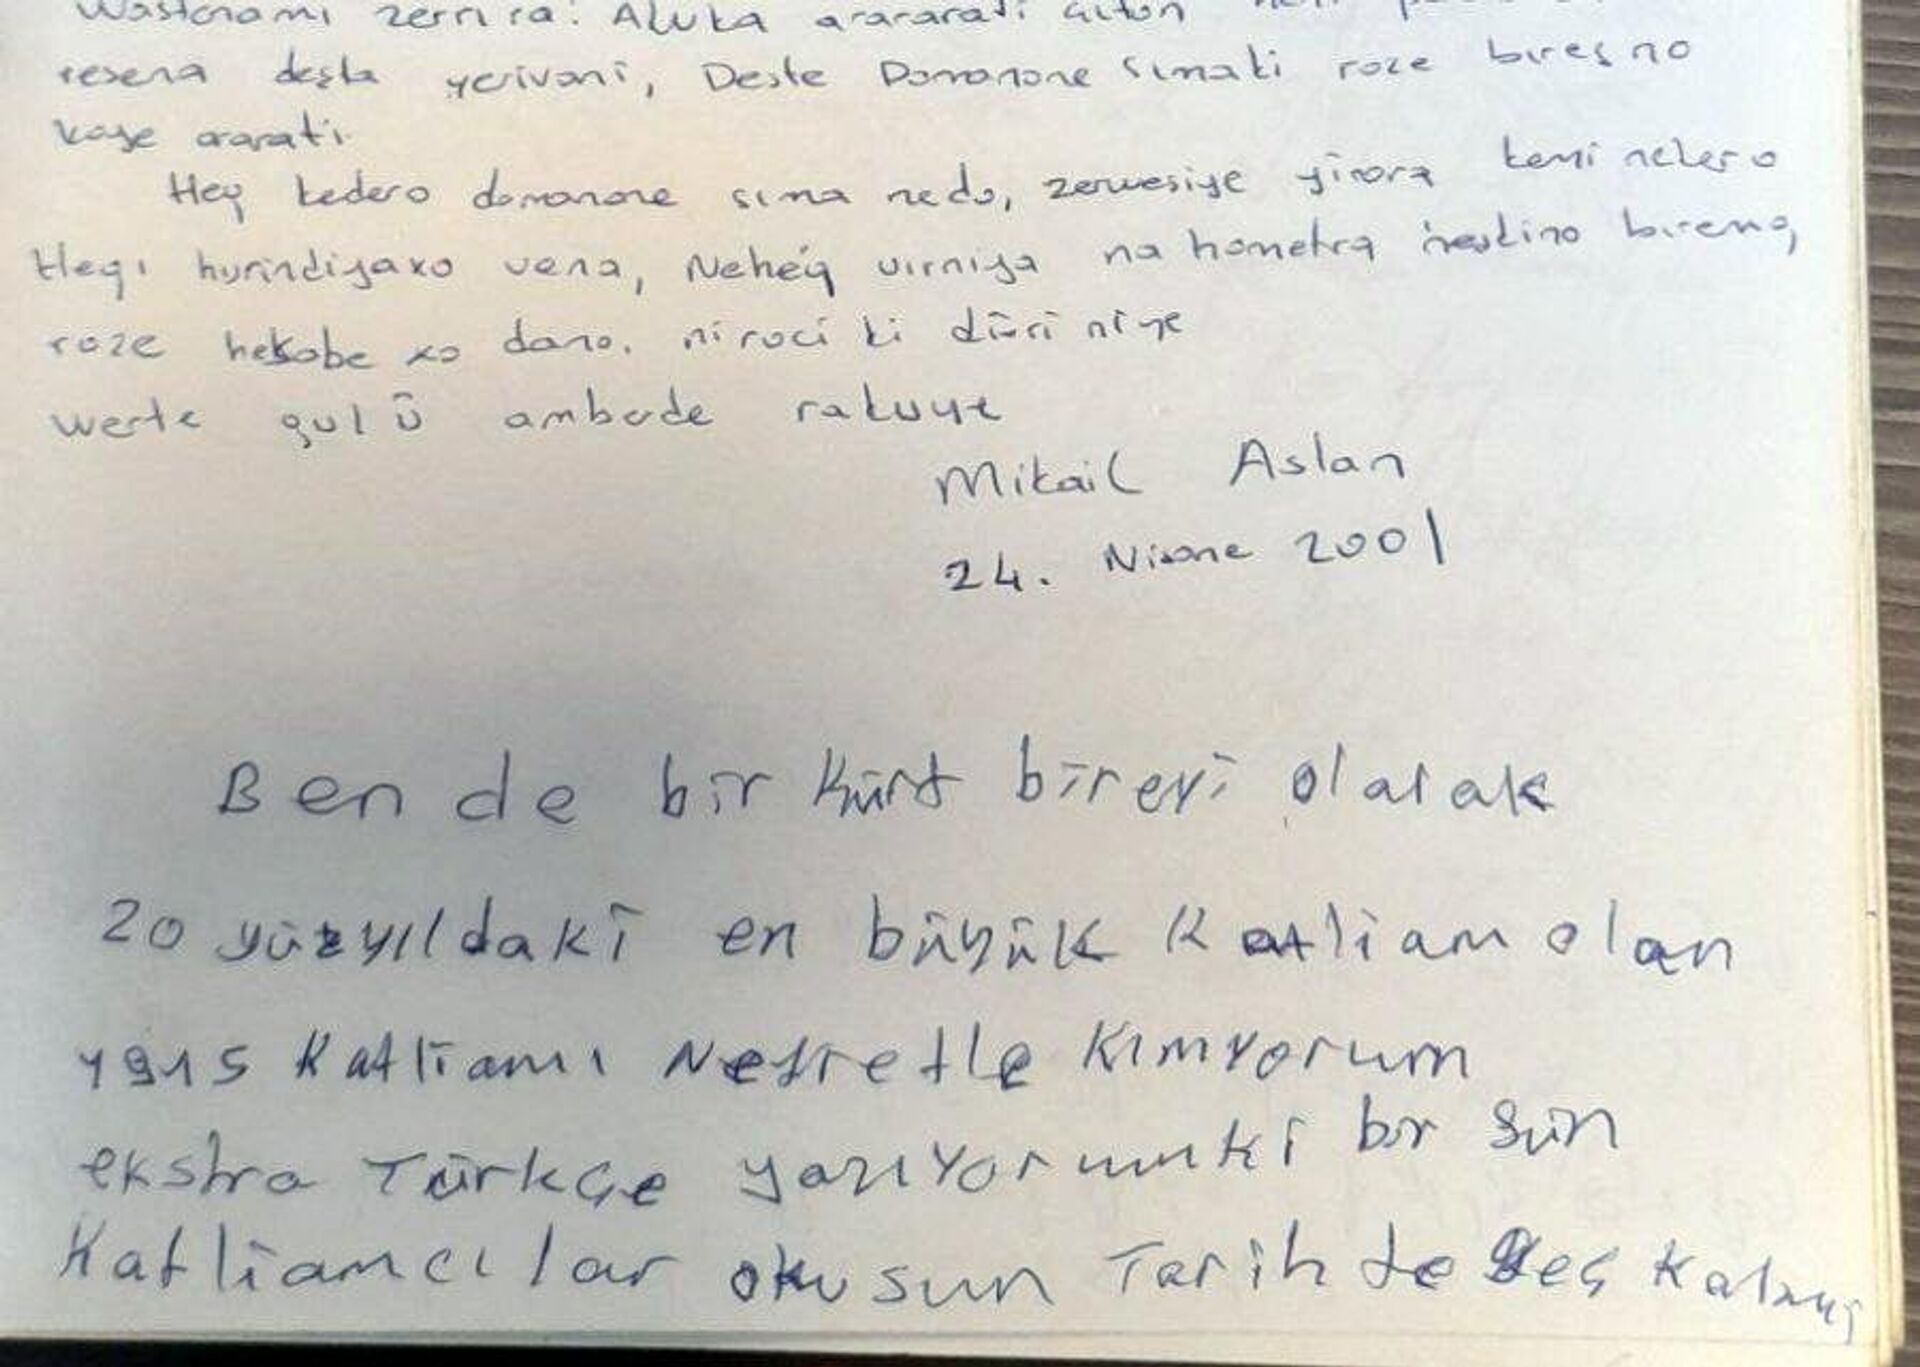 resena deşta yerivani, Deste Domanone sımaki roze bıreş no
koye ararati.
Hey kedero domanone sıma nedo, zerweşiye yinora kemi nekero
Heqı hurindiyaxo vena, Neheq virniya na hometra nestino bıremo,
roze hesabe xo dano. ni roci ki dūri niye
werte gul û ambode rakuye
Mikail Aslan
24. Nisane 2001
Ben de bir Kürt bireyi olarak
20 yüzyıldaki en büyük Katliam olan
1915 Katliamı Nefretle Kımyorum
ekstra Türkçe yazıyorumki bir gün
Katliamcılar okusun Tarihte geç